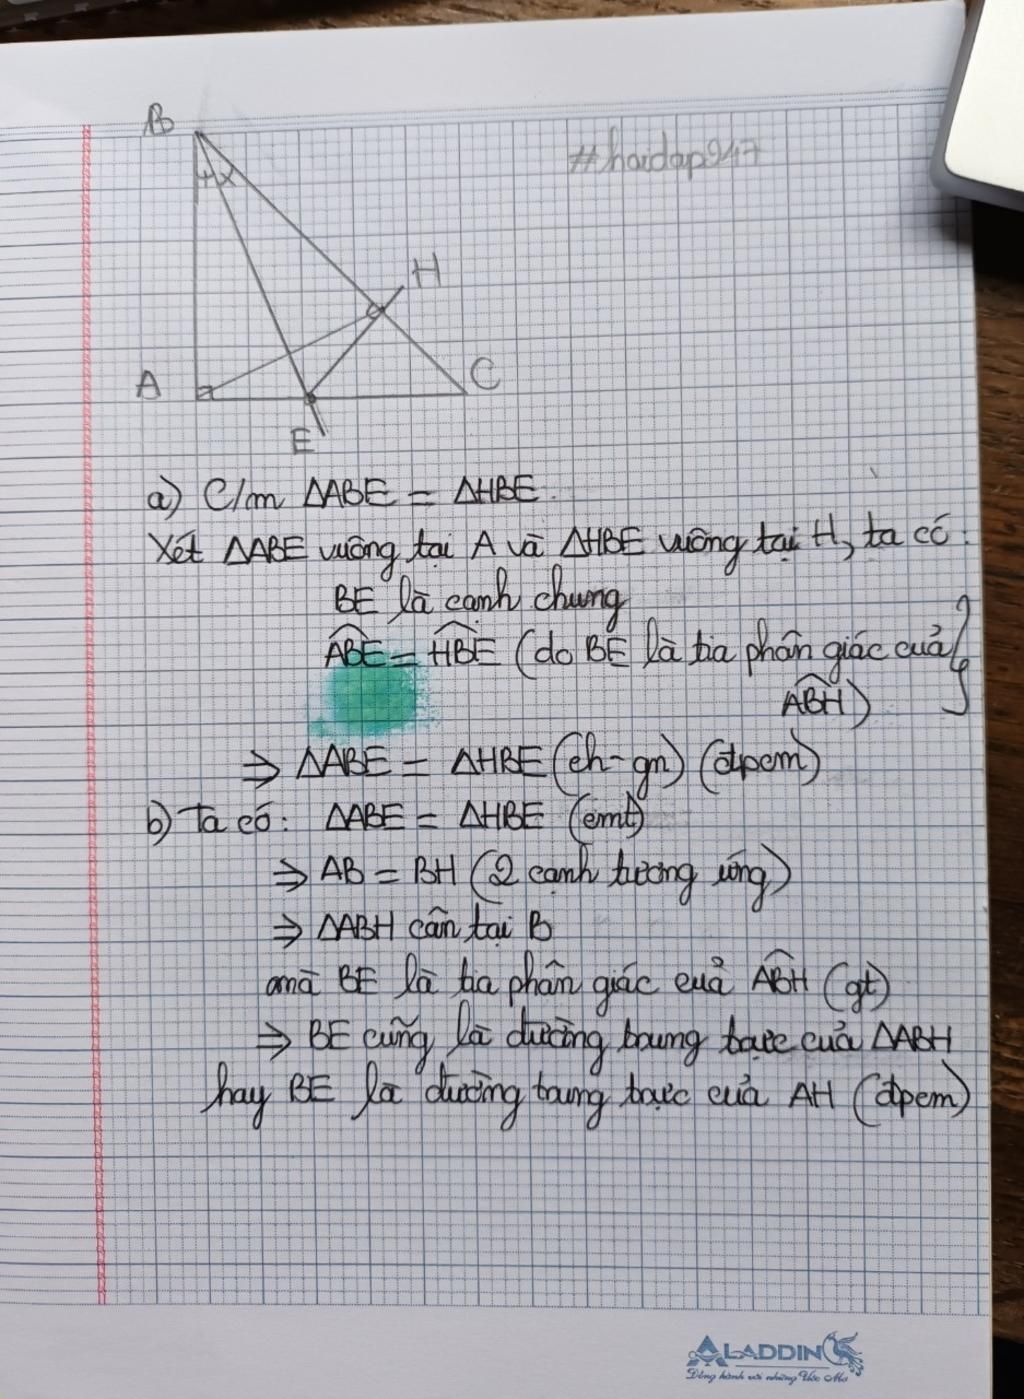 B
#hoidap247
H
A
C
E
a) C/m ΔABE = ΔHBE.
Xét ΔABE vuông tại A và ΔHBE vuông tại H, ta có:
BE là cạnh chung
ABE = HBE (do BE là tia phân giác của
ABH)
⇒ ΔABE = ΔHBE (ch-gn) (đpcm)
b) Ta có: ΔABE = ΔHBE (cmt)
⇒ AB = BH (2 cạnh tương ứng)
⇒ ΔABH cân tại B
mà BE là tia phân giác của ABH (gt)
⇒ BE cũng là đường trung trực của ΔABH
hay BE là đường trung trực của AH (đpcm)
ALADDIN
Đồng hành với những Ước Mơ